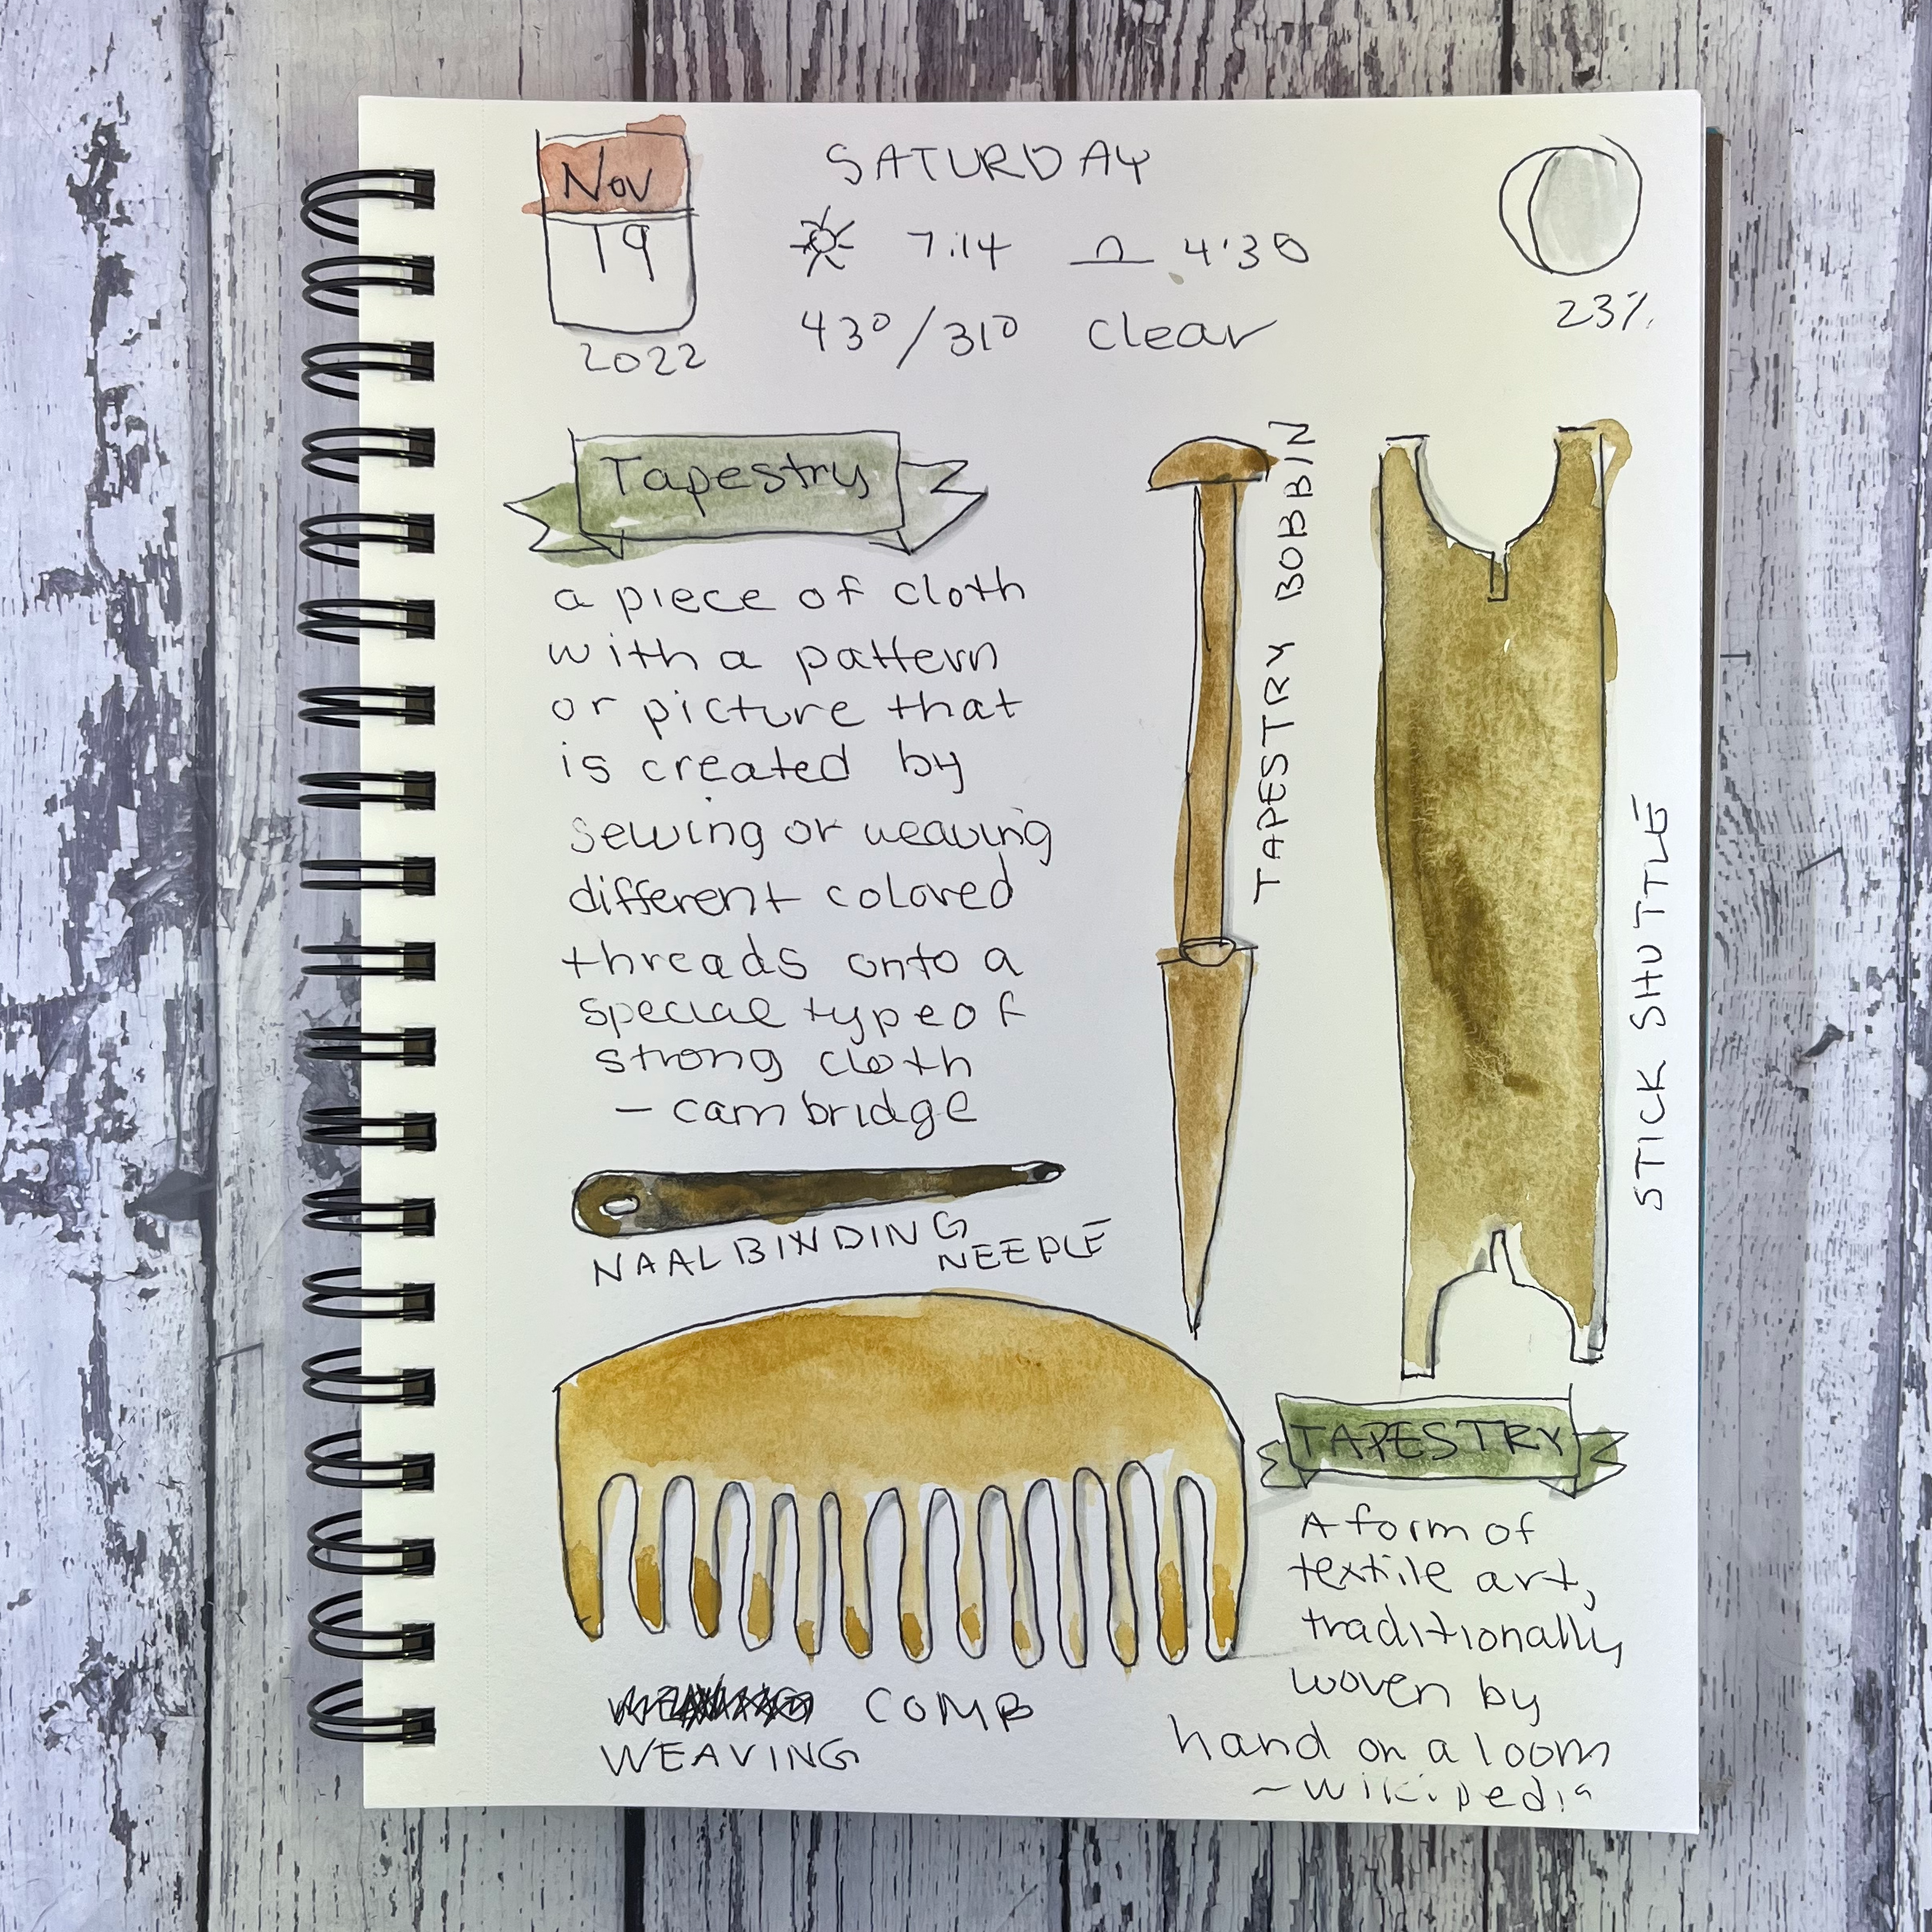 Nov
19
2022
SATURDAY
7:14 4:30
43°/31° clear
23%
Tapestry
a piece of cloth
with a pattern
or picture that
is created by
sewing or weaving
different colored
threads onto a
special type of
strong cloth
— cambridge
TAPESTRY BOBBIN
STICK SHUTTLE
NAALBINDING
NEEDLE
COMB
WEAVING
TAPESTRY
A form of
textile art,
traditionally
woven by
hand on a loom
~wikipedia